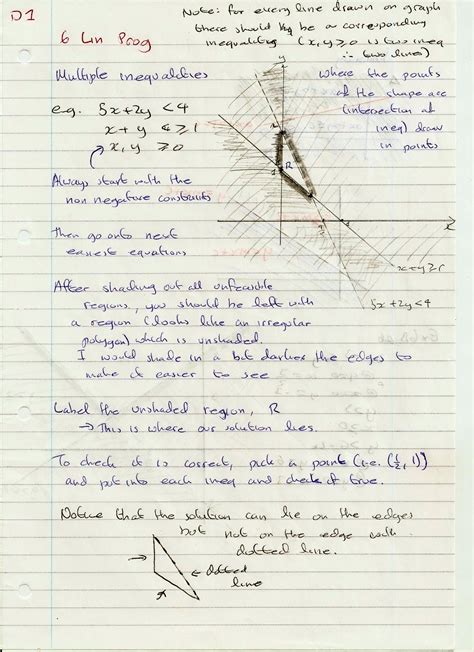 D1
Note: for every line drawn on graph
there should be a corresponding
inequalities (x, y ≥ 0 is two ineq
∴ two lines)
6 Lin Prog
Multiple inequalities
where the points
of the shape are
(intersection of
ineq) draw
in points
e.g. 5x + 2y < 4
x + y ≥ 1
x, y ≥ 0
R
x
x + y ≥ 1
5x + 2y < 4
Always start with the
non negative constraints
Then go onto next
easiest equations
After shading out all unfeasible
regions, you should be left with
a region (looks like an irregular
polygon) which is unshaded.
I would shade in a bit darker the edges to
make it easier to see
Label the unshaded region, R
→ This is where our solution lies.
To check it is correct, pick a point (i.e. (½, 1))
and put into each ineq and check if true.
Notice that the solution can lie on the edges
but not on the edge with
dotted line.
← dotted
line